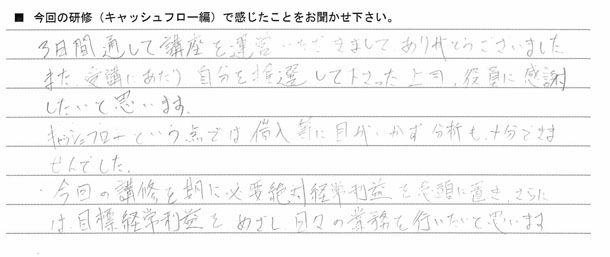 ■ 今回の研修（キャッシュフロー編）で感じたことをお聞かせ下さい。
3日間通して講座を運営いただきまして、ありがとうございました
また、受講にあたり自分を推選して下さった上司、役員に感謝
したいと思います。
キャッシュフローという点では借入等に目がいかず分析も十分できま
せんでした。
・今回の講修を期に必要絶対経常利益を念頭に置き、さらに
は、目標経常利益をめざし、日々の業務を行いたいと思います